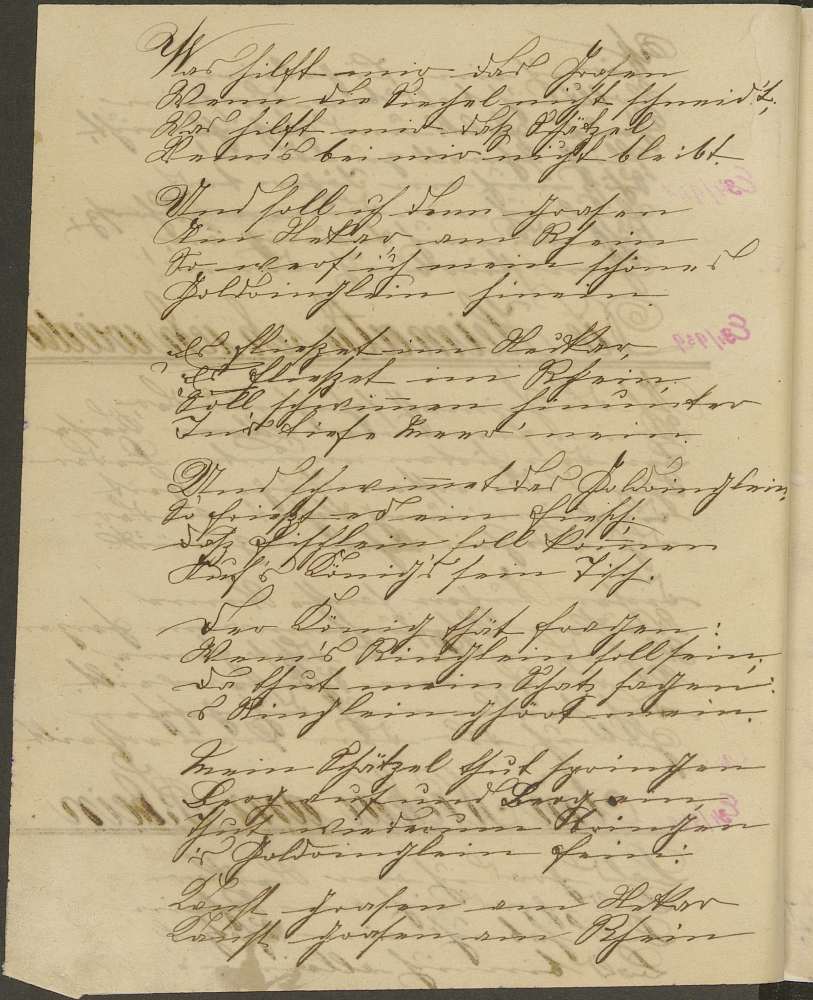 Was hilft mir das Grasen
Wenn die Sichel nicht schneid't;
Was hilft mir daß Schätzel
Wenn's bei mir nicht bleibt.
Und soll ich denn grasen
Am Nekar, am Rhein
So werf' ich mein schönes
Goldringlein hinein.
Es fließet im Neckar,
Es fließet im Rhein,
Soll schwim̅en hinunter
In's tiefe Meer 'nein.
Und schwim̅et das Goldringlein,
So frießt es ein Fisch;
Daß Fischlein soll kom̅en
Auf's König's sein Tisch.
Der König thät fragen:
Wem's Ringlein soll sein,
Da thut mein Schatz sagen:
's Ringlein ghört mein.
Mein Schätzel thut springen
Berg auf und Berg ein,
Thut wiederum bringen
's Goldringlein fein:
Kanst grasen am Nekar
Kanst grasen am Rhein